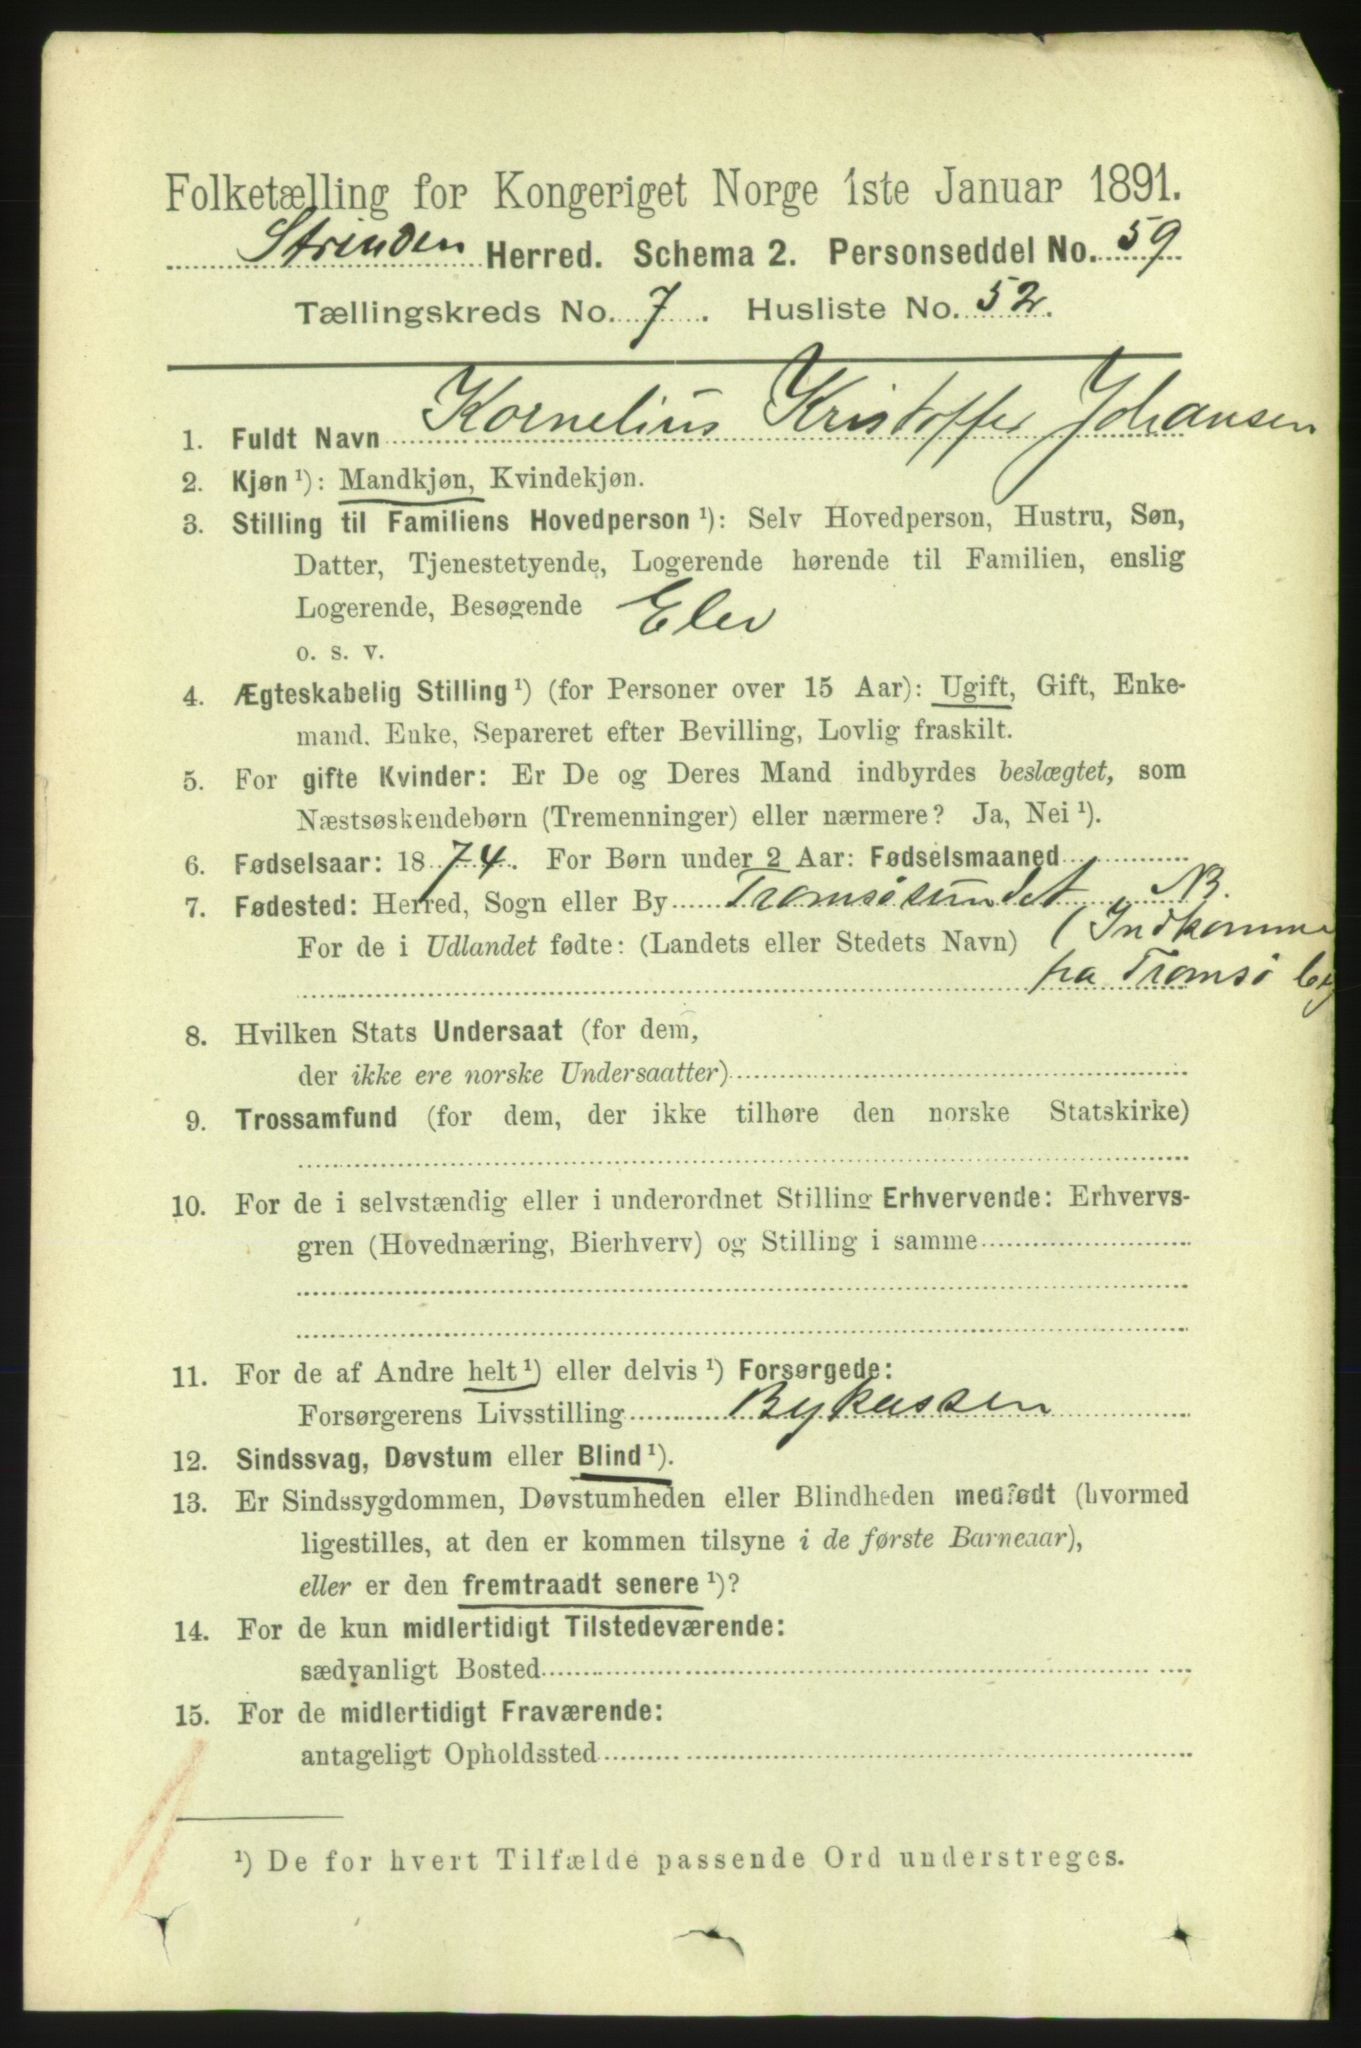 Folketælling for Kongeriget Norge 1ste Januar 1891.
Strinden Herred. Schema 2. Personseddel No. 59
Tællingskreds No. 7. Husliste No. 52.
1. Fuldt Navn Kornelius Kristoffer Johansen
2. Kjøn ¹): Mandkjøn, Kvindekjøn.
3. Stilling til Familiens Hovedperson ¹): Selv Hovedperson, Hustru, Søn,
Datter, Tjenestetyende, Logerende hørende til Familien, enslig
Logerende, Besøgende Elev
o. s. v.
4. Ægteskabelig Stilling ¹) (for Personer over 15 Aar): Ugift, Gift, Enke-
mand. Enke, Separeret efter Bevilling, Lovlig fraskilt.
5. For gifte Kvinder: Er De og Deres Mand indbyrdes beslægtet, som
Næstsøskendebørn (Tremenninger) eller nærmere? Ja, Nei ¹).
6. Fødselsaar: 1874. For Børn under 2 Aar: Fødselsmaaned
7. Fødested: Herred, Sogn eller By Tromsøsundet NB.
For de i Udlandet fødte: (Landets eller Stedets Navn) (Indkomme
fra Tromsø by
8. Hvilken Stats Undersaat (for dem,
der ikke ere norske Undersaatter)
9. Trossamfund (for dem, der ikke tilhøre den norske Statskirke)
10. For de i selvstændig eller i underordnet Stilling Erhvervende: Erhvervs-
gren (Hovednæring, Bierhverv) og Stilling i samme
11. For de af Andre helt ¹) eller delvis ¹) Forsørgede:
Forsørgerens Livsstilling Bykassen
12. Sindssvag, Døvstum eller Blind ¹).
13. Er Sindssygdommen, Døvstumheden eller Blindheden medfødt (hvormed
ligestilles, at den er kommen tilsyne i de første Barneaar),
eller er den fremtraadt senere ¹)?
14. For de kun midlertidigt Tilstedeværende:
sædvanligt Bosted
15. For de midlertidigt Fraværende:
antageligt Opholdssted
¹) De for hvert Tilfælde passende Ord understreges.